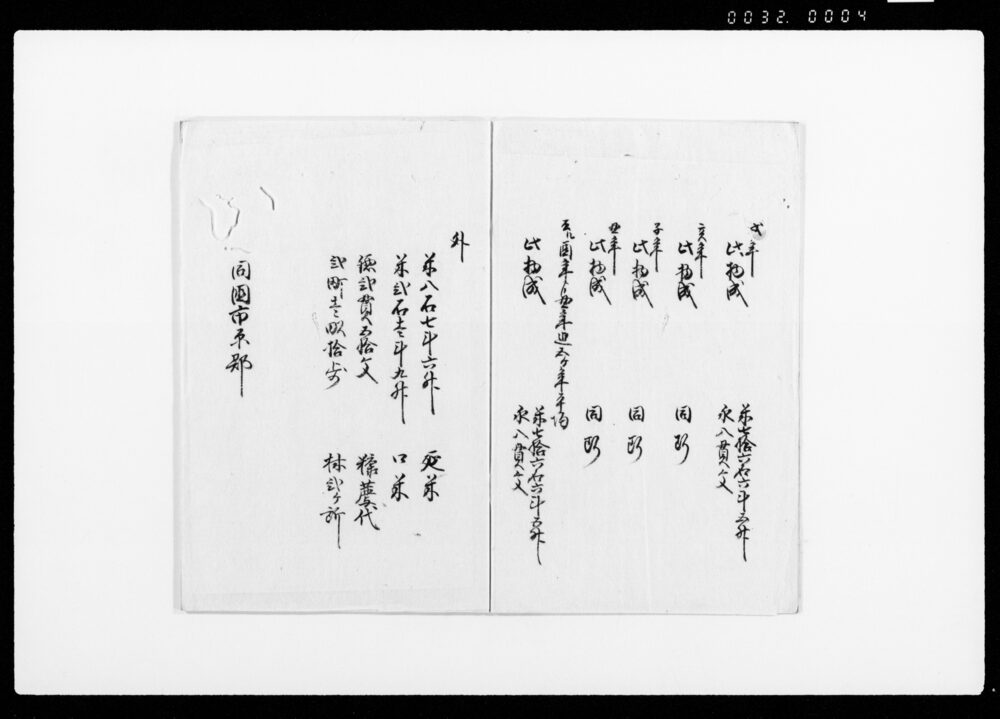 0032. 0004
戌年
此物成
米七拾六石六斗五升
永八貫文
亥年
此物成 同断
子年
此物成 同断
丑年
此物成 同断
酉年ゟ丑年迄五ヶ年平均
此物成
米七拾六石六斗五升
永八貫文
外
米八石七斗六升 延米
米弐石壱斗九升 口米
弐貫五拾文 糠藁代
弐町壱畝拾歩 林弐ヶ所
同国市原郡